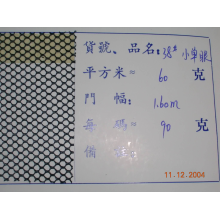 貨號、品名:38# 小單眼
平方米= 60 克
門 幅: 1.60m
每 碼= 90 克
備 註:
11.12.2004